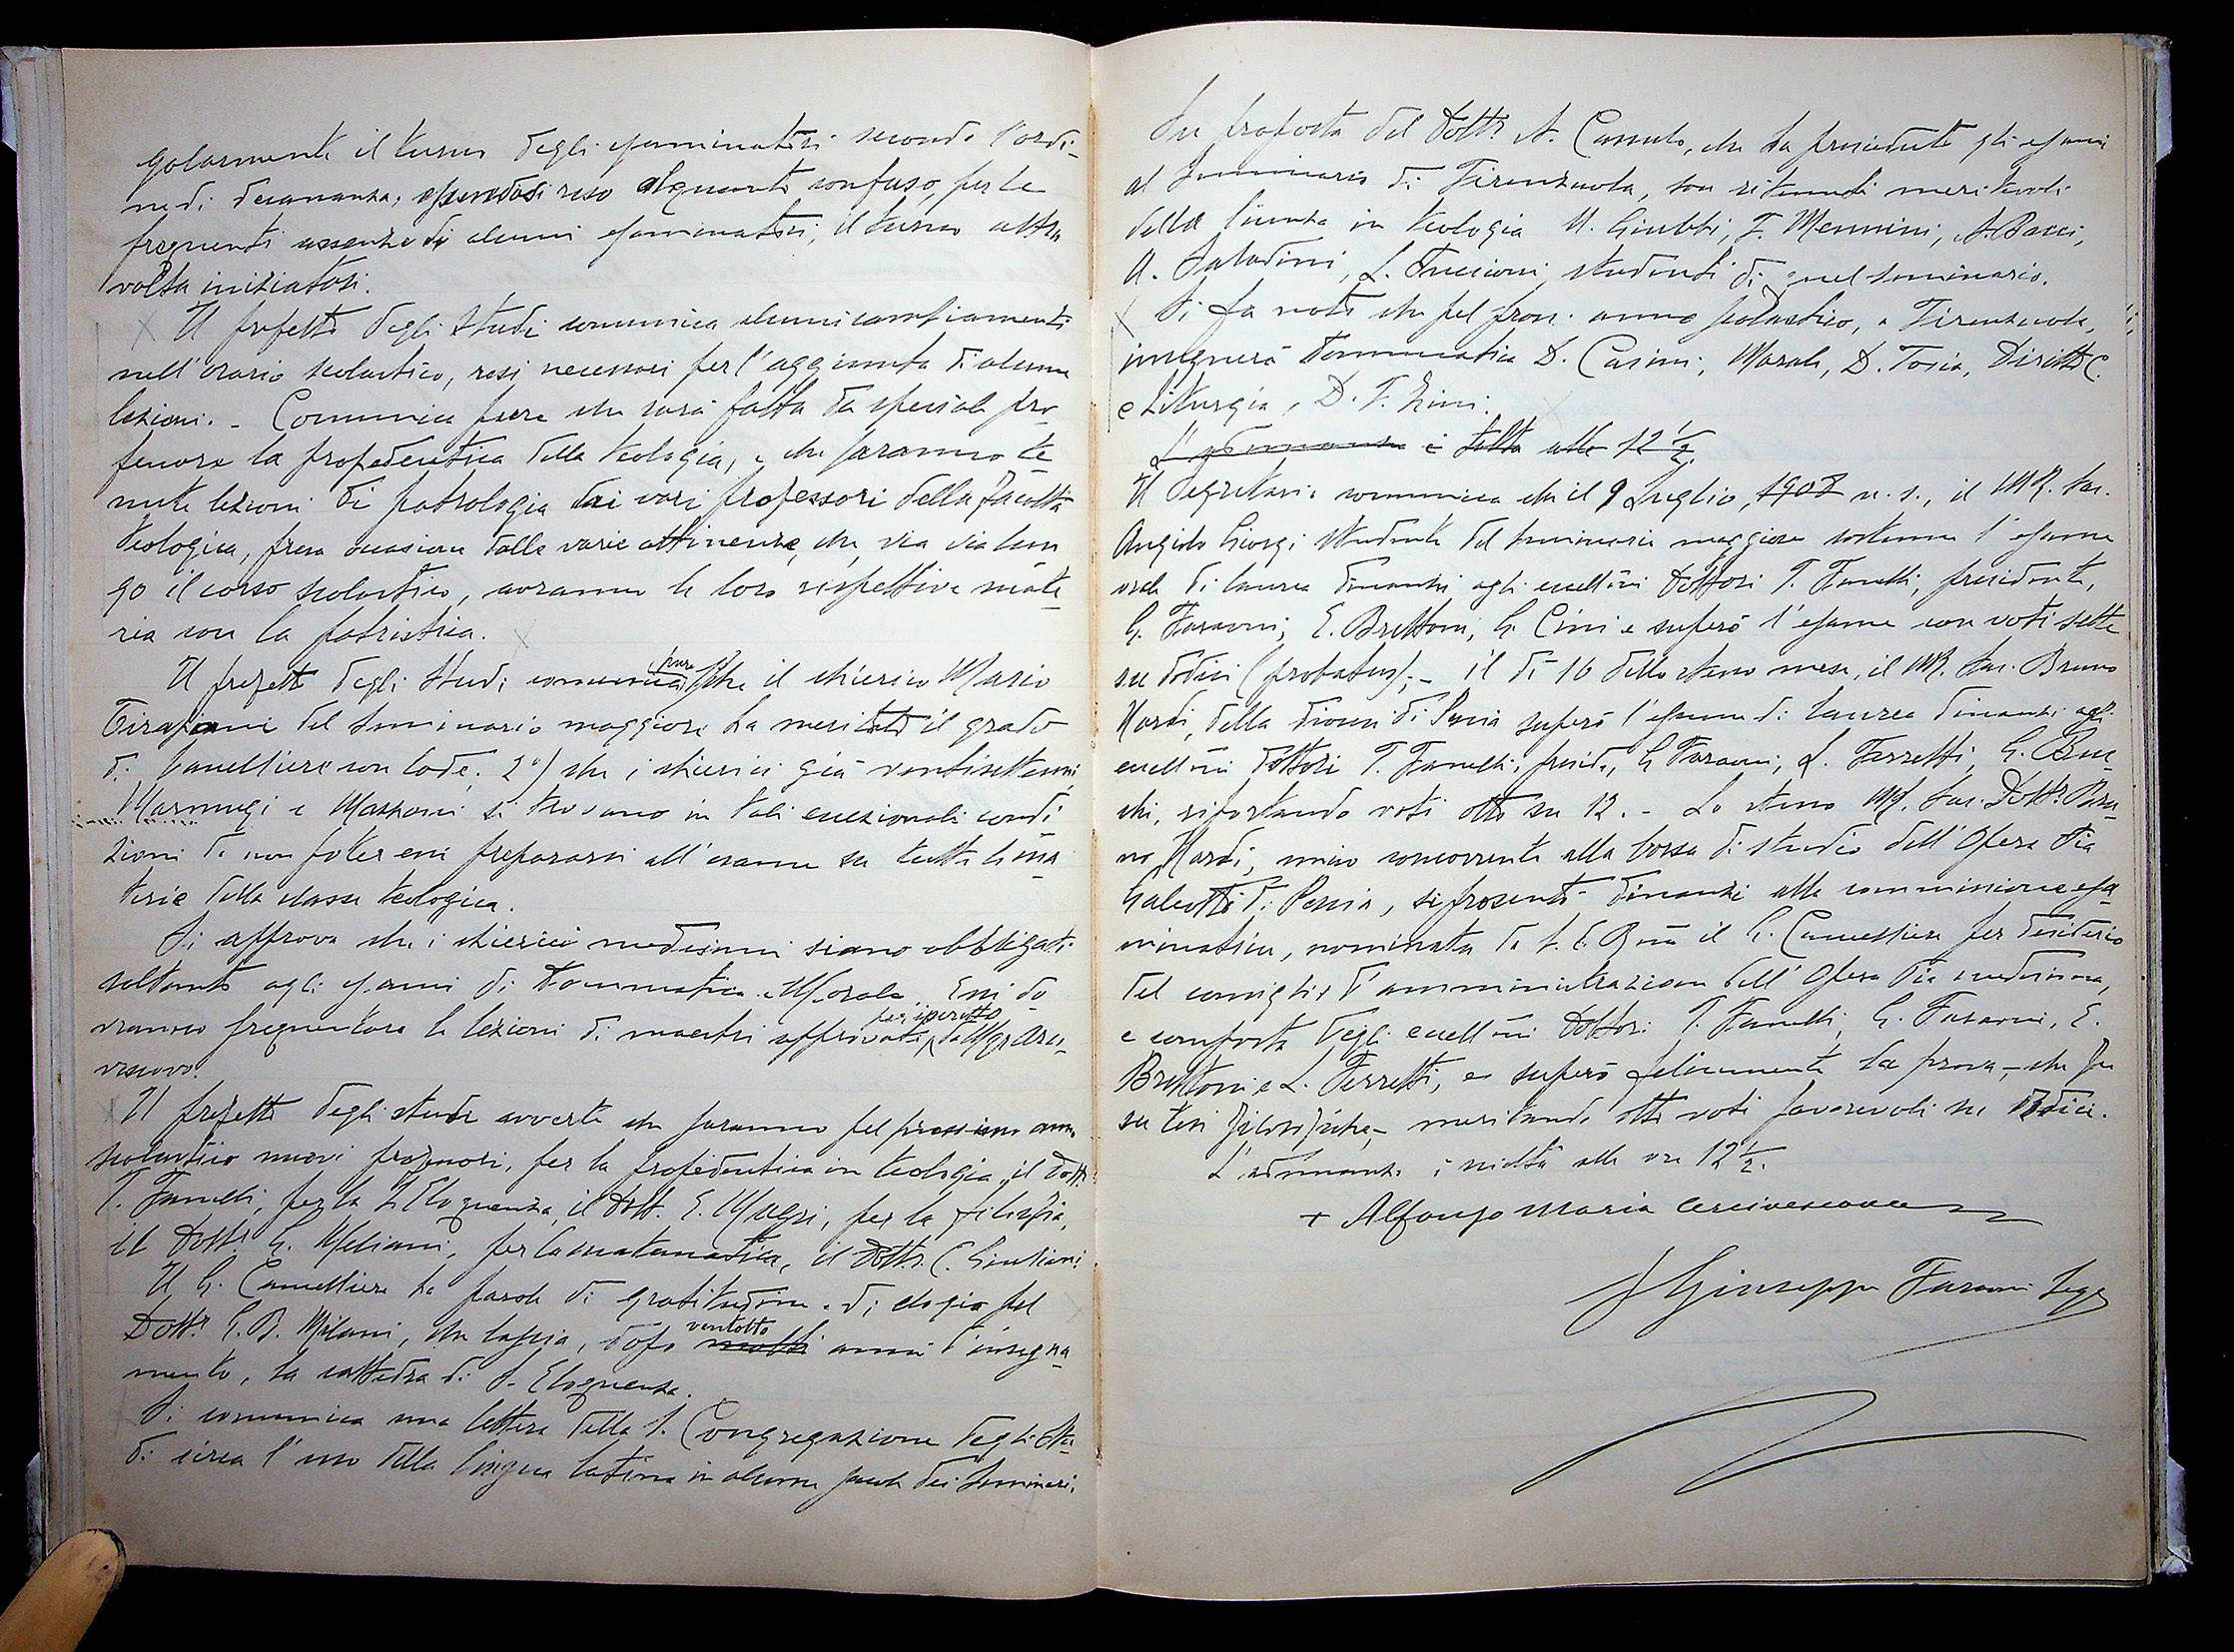 golarmente il turno degli esaminatori secondo l'ordi-
ne di decananza, essendosi reso alquanto confuso, per le
frequenti assenze di alcuni esaminatori, il turno altra
volta iniziatosi.
Il prefetto degli studi comunica alcuni cambiamenti
nell'orario scolastico, resi necessari per l'aggiunta di alcune
lezioni. - Comunica pure che sarà fatta da speciale pro-
fessore la propedeutica della teologia, e che saranno te-
nute lezioni di patrologia dai vari professori della facoltà
teologica, presa occasione dalle varie attinenze, che via via lun-
go il corso scolastico, avranno le loro rispettive mate-
ria con la patristica.
Il prefetto degli studi comunica pure che il chierico Mario
Tirapani del seminario maggiore ha meritato il grado
di Baccelliere con lode; 2°) che i chierici già ventisettenni
Marmugi e Mazzoni si trovano in tali eccezionali condi-
zioni da non poter essi prepararsi all'esame su tutte le ma-
terie della classe teologica.
Si approva che i chierici medesimi siano obbligati
soltanto agli esami di Dommatica e Morale. Essi do-
vranno frequentare le lezioni di maestri approvati per iscritto da Mgr Arci-
vescovo.
Il prefetto degli studi avverte che saranno pel prossimo anno
scolastico nuovi professori, per la propedeutica in teologia, il Dott.
T. Fanelli, per la S. Eloquenza, il Dott. E. Magri, per la filosofia,
il Dott. G. Meliani, per la matematica, il Dott. C. Giuliani.
Il G. Cancelliere ha parole di gratitudine e di elogio pel
Dott. G. B. Milani, che lascia, dopo molti ventotto anni d'insegna-
mento, la cattedra di S. Eloquenza.
Si comunica una lettera della S. Congregazione degli Stu-
di circa l'uso della lingua latina in alcune scuole dei Seminari.
Su proposta del Dott. A. Cassulo, che ha presieduto gli esami
al Seminario di Firenzuola, son ritenuti meritevoli
della licenza in teologia U. Giubbi, F. Mennini, A. Bacci,
A. Saladini, L. Tuccioni studenti di quel seminario.
Si fa noto che pel pross. anno scolastico, a Firenzuola,
insegnerà Dommatica D. Casini, Morale, D. Tosia, Diritto C.
e Liturgia, D. F. Zini.
L'adunanza è tolta alle 12 1/2.
Il Segretario comunica che il 9 Luglio, 1908 u. s., il MR. Sac.
Angiolo Giorgi studente del Seminario maggiore sostenne l'esame
orale di laurea dinanzi agli eccellmi Dottori T. Fanelli, presidente,
G. Faraoni, E. Brettoni, G. Cini e superò l'esame con voti sette
su dodici (probatus); - il dì 16 dello stesso mese, il MR. Sac. Bruno
Nardi, della diocesi di Pescia superò l'esame di laurea dinanzi agli
eccellmi Dottori T. Fanelli, presid., G. Faraoni, L. Ferretti, G. Bene-
chi, riportando voti otto su 12. - Lo stesso MR. Sac. Dott. Bru-
no Nardi, unico concorrente alla borsa di studio dell'Opera Pia
Galeotti di Pescia, si presentò dinanzi alla commissione esa-
minatrice, nominata da S. E. Rma il G. Cancelliere per desiderio
del consiglio d'amministrazione dell'Opera Pia medesima,
e composta degli eccellmi Dottori T. Fanelli, G. Faraoni, E.
Brettoni e L. Ferretti, e superò felicemente la prova, - che fu
su tesi filosofiche, - meritando otto voti favorevoli su dodici.
L'adunanza è sciolta alle ore 12 1/2.
+ Alfonso Maria Arcivescovo
Giuseppe Faraoni Segr